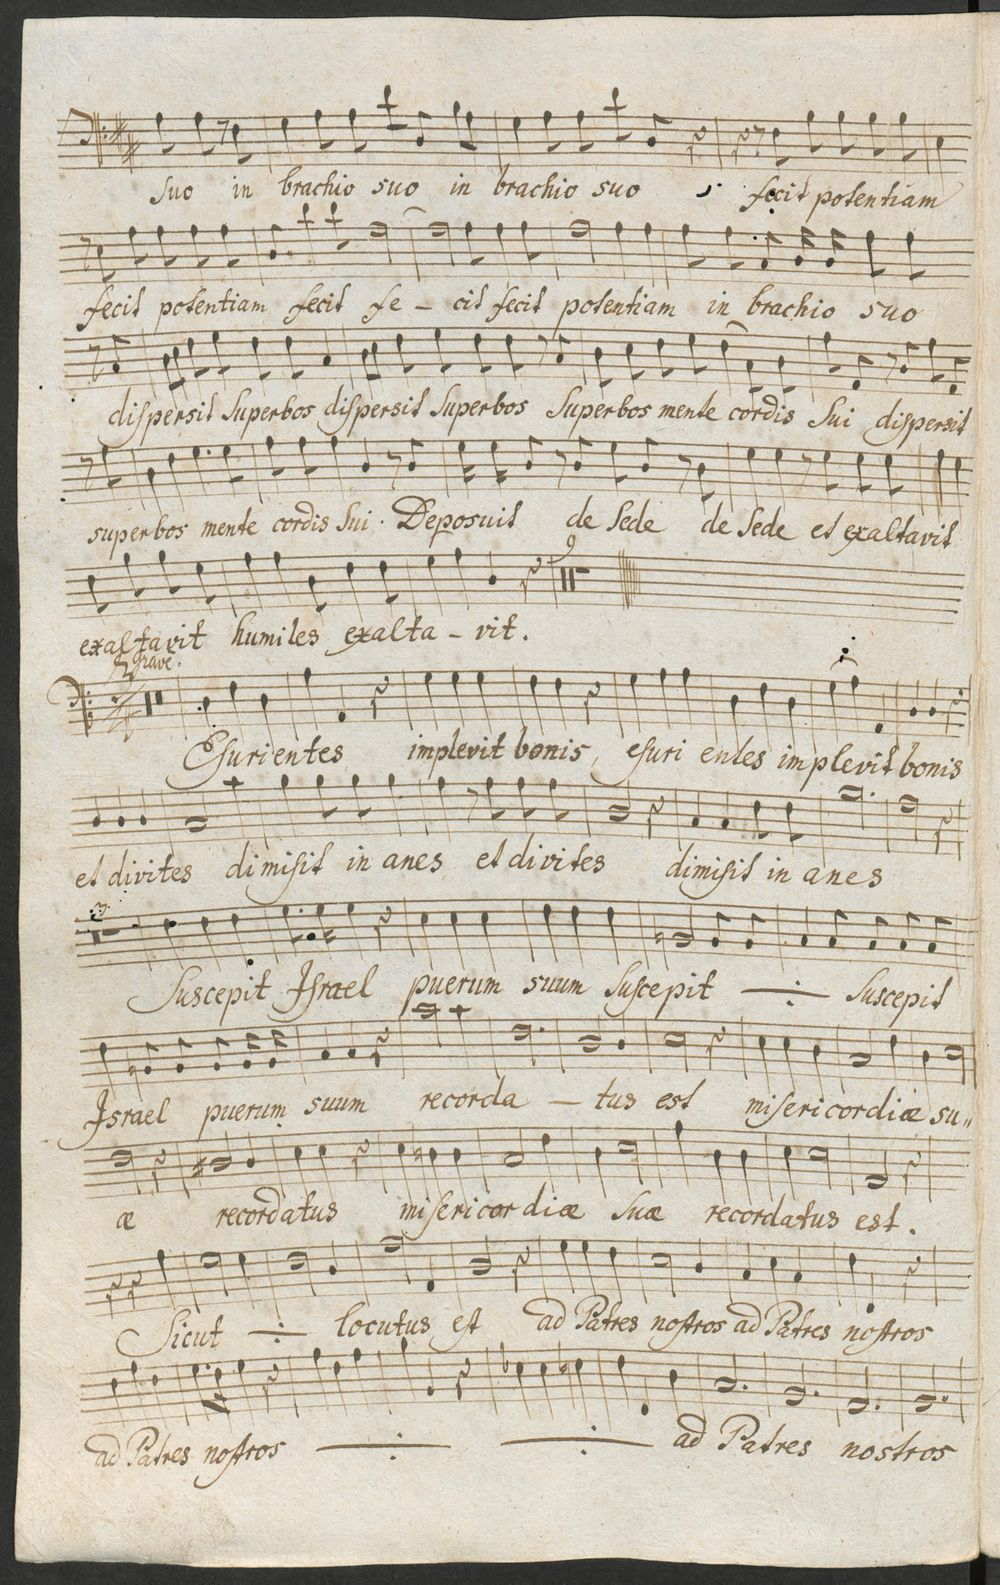 suo in brachio suo in brachio suo fecit potentiam
fecit potentiam fecit fe - cit fecit potentiam in brachio suo
dispersit superbos dispersit superbos superbos mente cordis sui dispersit
superbos mente cordis sui. Deposuit de sede de sede et exaltavit
9
exaltavit humiles exalta - vit.
grave.
Esurientes implevit bonis, esuri entes implevit bonis
et divites dimisit in anes et divites dimisit in anes
3
Suscepit Israel puerum suum suscepit suscepit
Israel puerum suum recorda - tus est misericordiæ su„
æ recordatus misericordiæ suæ recordatus est.
Sicut locutus est ad Patres nostros ad Patres nostros
ad Patres nostros ad Patres nostros